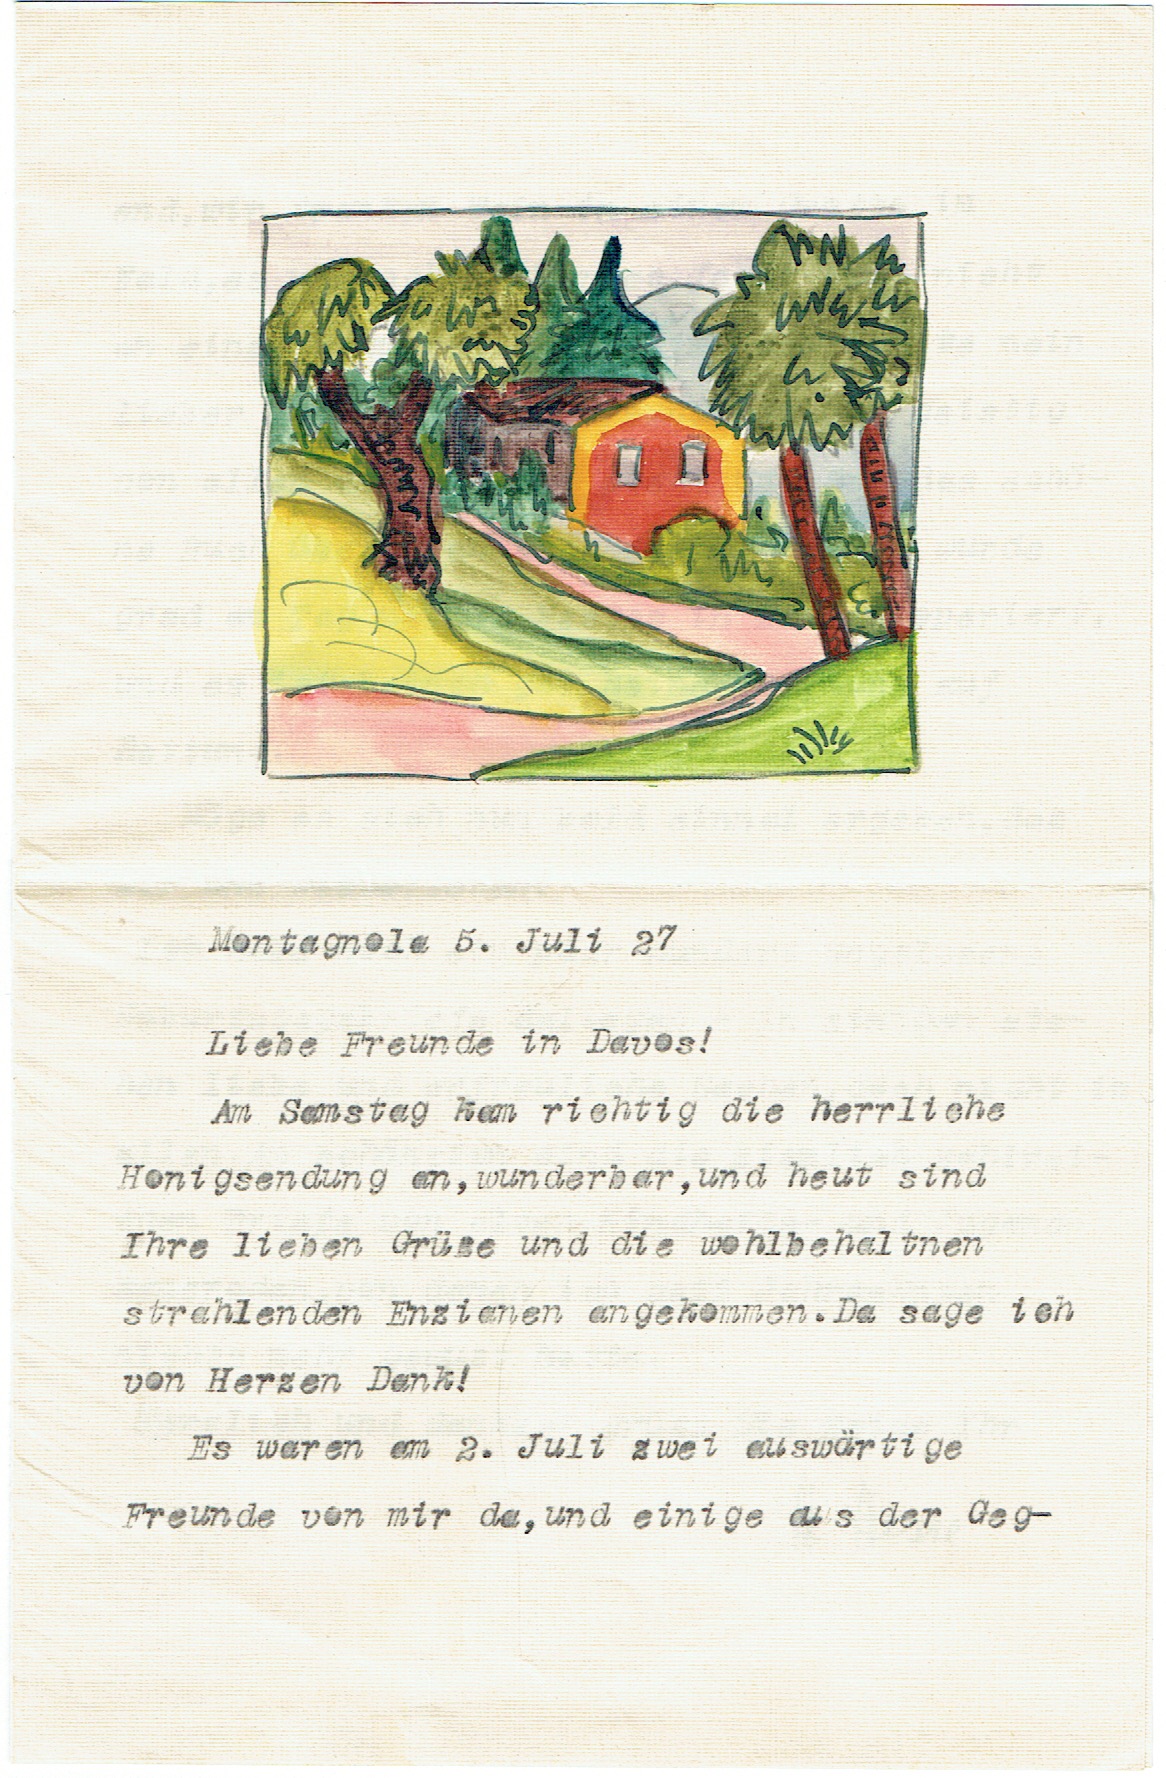 Montagnola 5. Juli 27
Liebe Freunde in Davos!
Am Samstag kam richtig die herrliche
Honigsendung an,wunderbar,und heut sind
Ihre lieben Grüsse und die wohlbehaltnen
strahlenden Enzianen angekommen.Da sage ich
von Herzen Dank!
Es waren am 2. Juli zwei auswärtige
Freunde von mir da,und einige aus der Geg-